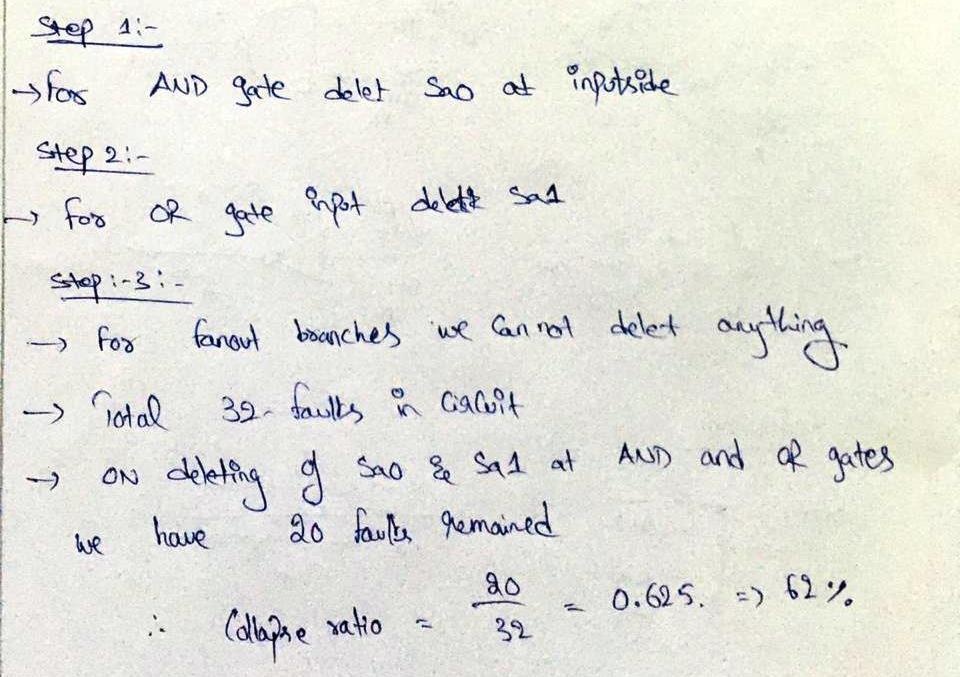 Step 1:-
→ For AND gate delet Sa0 at inputside
Step 2:-
→ for OR gate input delet Sa1
Step:-3:-
→ For fanout branches we Can not delet anything
→ Total 32 faults in Circuit
→ ON deleting of Sa0 & Sa1 at AND and OR gates
we have 20 faults remained
∴ Collapse ratio = 20/32 = 0.625. => 62%.